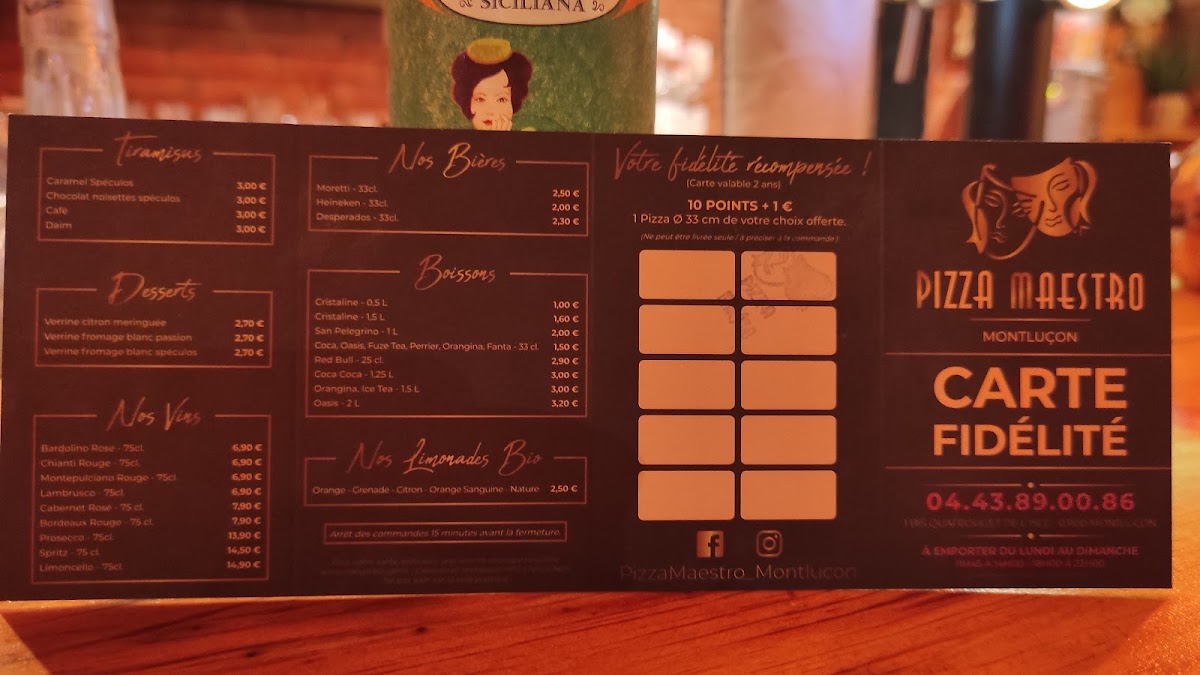 SICILIANA
Tiramisus
Caramel Spéculos 3,00 €
Chocolat noisettes spéculos 3,00 €
Café 3,00 €
Daim 3,00 €
Desserts
Verrine citron meringuée 2,70 €
Verrine fromage blanc passion 2,70 €
Verrine fromage blanc spéculos 2,70 €
Nos Vins
Bardolino Rose - 75cl. 6,90 €
Chianti Rouge - 75cl. 6,90 €
Montepulciano Rouge - 75cl. 6,90 €
Lambrusco - 75cl. 6,90 €
Cabernet Rosé - 75 cl. 7,90 €
Bordeaux Rouge - 75 cl. 7,90 €
Prosecco - 75cl. 13,90 €
Spritz - 75 cl. 14,50 €
Limoncello - 75cl. 14,90 €
Nos Bières
Moretti - 33cl. 2,50 €
Heineken - 33cl. 2,00 €
Desperados - 33cl. 2,30 €
Boissons
Cristaline - 0,5 L 1,00 €
Cristaline - 1,5 L 1,60 €
San Pelegrino - 1 L 2,00 €
Coca, Oasis, Fuze Tea, Perrier, Orangina, Fanta - 33 cl. 1,50 €
Red Bull - 25 cl. 2,90 €
Coca Coca - 1,25 L 3,00 €
Orangina, Ice Tea - 1,5 L 3,00 €
Oasis - 2 L 3,20 €
Nos Limonades Bio
Orange - Grenade - Citron - Orange Sanguine - Nature 2,50 €
Arrêt des commandes 15 minutes avant la fermeture.
Votre fidélité récompensée !
(Carte valable 2 ans)
10 POINTS + 1 €
1 Pizza Ø 33 cm de votre choix offerte.
(Ne peut être livrée seule / à préciser à la commande)
PizzaMaestro_Montlucon
PIZZA MAESTRO
MONTLUÇON
CARTE
FIDÉLITÉ
04.43.89.00.86
À EMPORTER DU LUNDI AU DIMANCHE